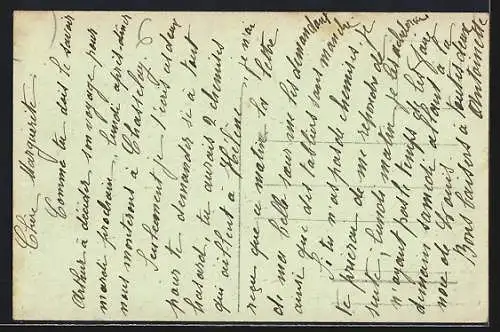 Cher Marguerite
Comme tu dois le savoir
Arthur à décider son voyage pour
mardi prochain, lundi après-diner
nous monterons à Chasselay.
Seulement je t'écris ces deux
pour te demander si à tout
hasard, tu aurais 2 chemises
qui aillent à Hélène, je n'ai
reçue que ce matin la lettre
de ma belle sœur me les demandant
ainsi que des tabliers sans manche
Si tu n'as pas de chemises, je
te prierai de me répondre de
suite, lundi matin je
n'ayant pas le temps de les faire
demain samedi allant à la
de Louis.
Bons baisers à toutes deux
Antoinette